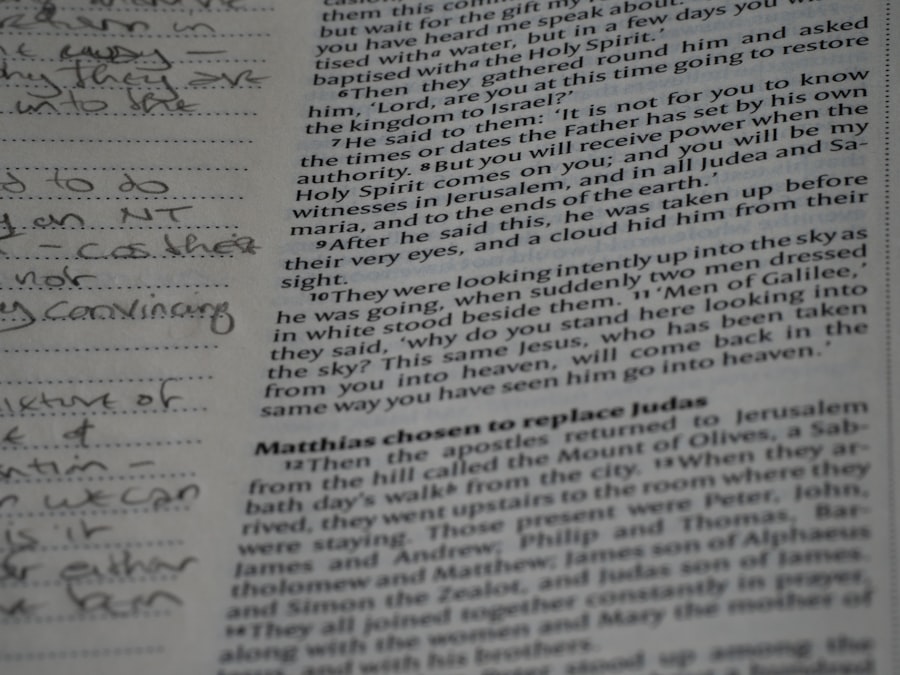 in
away –
they are
into the
to do
an NT
– cos their
not
convincing
of
&
–
we can
is it
either
them this
but wait for the gift my
you have heard me speak about.
tised withᵃ water, but in a few days you
baptised withᵃ the Holy Spirit.’
⁶Then they gathered round him and asked
him, ‘Lord, are you at this time going to restore
the kingdom to Israel?’
⁷He said to them: ‘It is not for you to know
the times or dates the Father has set by his own
authority. ⁸But you will receive power when the
Holy Spirit comes on you; and you will be my
witnesses in Jerusalem, and in all Judea and Sa-
maria, and to the ends of the earth.’
⁹After he said this, he was taken up before
their very eyes, and a cloud hid him from their
sight.
¹⁰They were looking intently up into the sky as
he was going, when suddenly two men dressed
in white stood beside them. ¹¹‘Men of Galilee,’
they said, ‘why do you stand here looking into
the sky? This same Jesus, who has been taken
from you into heaven, will come back in the
same way you have seen him go into heaven.’
Matthias chosen to replace Judas
¹²Then the apostles returned to Jerusalem
from the hill called the Mount of Olives, a Sab-
bath day's walkᵇ from the city. ¹³When they ar-
rived, they went upstairs to the room where they
were staying. Those present were Peter, John,
James and Andrew; Philip and Thomas, Bar-
tholomew and Matthew; James son of Alphaeus
and Simon the Zealot, and Judas son of James.
¹⁴They all joined together constantly in prayer,
along with the women and Mary the mother of
and with his brothers.
stood up among the
hundred